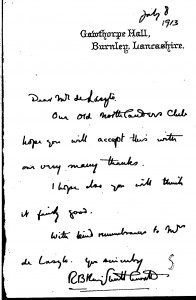 July 8
1913
Gawthorpe Hall,
Burnley, Lancashire.
Dear Mr de Laszlo.
Our Old North Club
hope you will accept this with
our very many thanks.
I hope also you will think
it fairly good.
With kind remembrances to Mrs
de Laszlo. Yrs sincerely